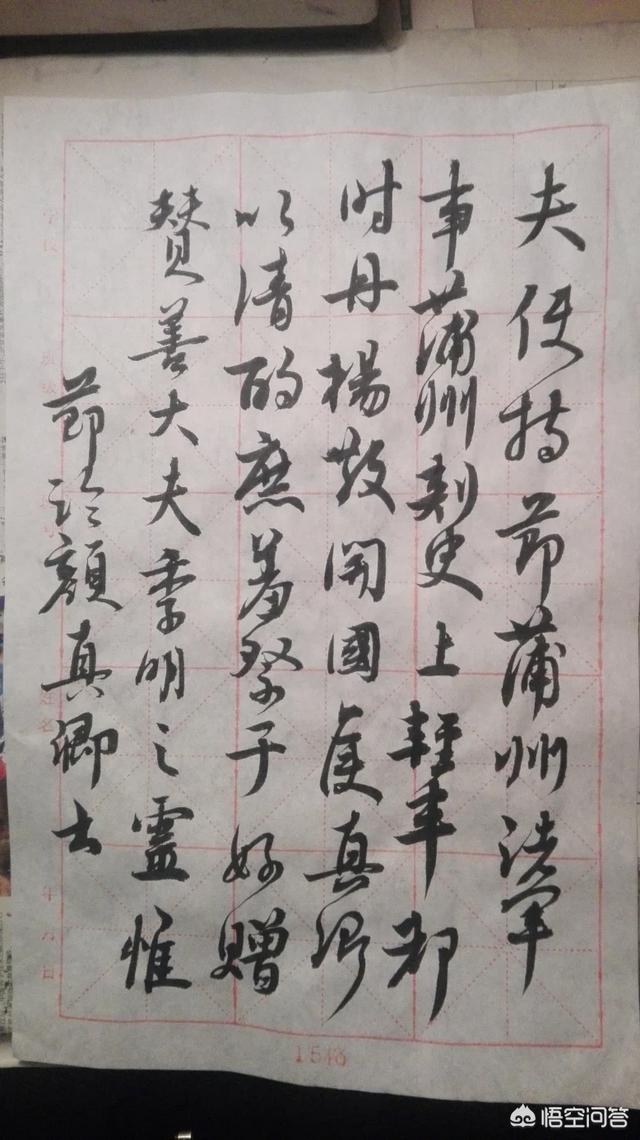 夫使持节蒲州諸軍
事蒲州刺史上輕車都
时丹楊故開國侯真卿
以清酌庶羞祭于姪贈
贊善大夫季明之靈惟
节论顔真卿書
1548
悟空问答